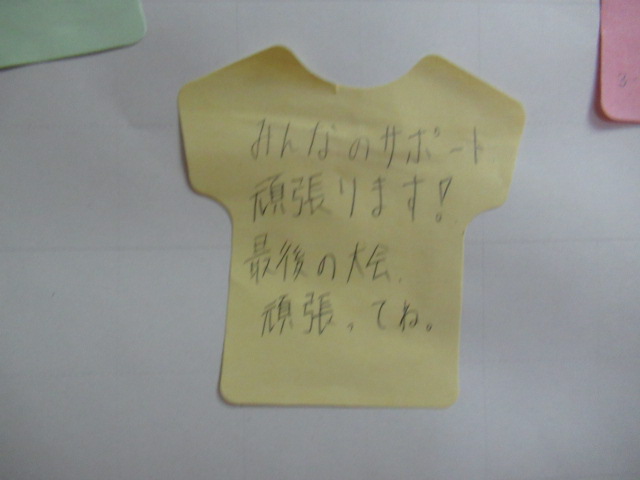 みんなのサポート
頑張ります!
最後の大会、
頑張ってね。
3